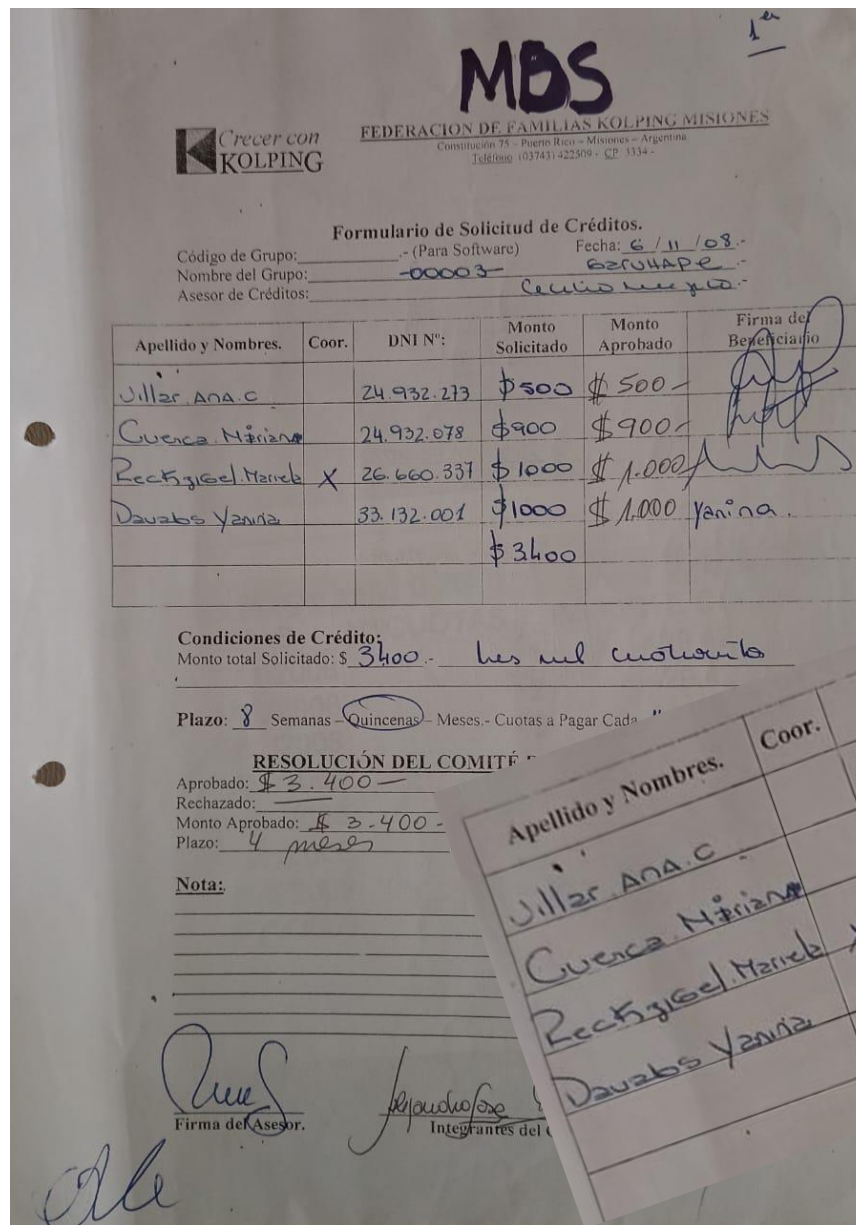 1
MBS
Crecer con
KOLPING
FEDERACION DE FAMILIAS KOLPING MISIONES
Constitución 75 – Puerto Rico – Misiones – Argentina
Teléfono (03743) 422509 - CP 3334 -
Formulario de Solicitud de Créditos.
Código de Grupo: .- (Para Software) Fecha: 6 / 11 / 08.-
Nombre del Grupo: -00003- GARUHAPE .-
Asesor de Créditos: Cecilio .-
Apellido y Nombres. Coor. DNI N°: Monto Solicitado Monto Aprobado Firma del Beneficiario
Villar ANA.C 24.932.273 $500 $ 500-
Cuenca Mariana 24.932.078 $900 $900-
Mariela X 26.660.337 $1000 $ 1.000
Davalos Yanina 33.132.001 $1000 $ 1.000 Yanina.
$ 3400
Condiciones de Crédito:
Monto total Solicitado: $ 3400.- tres mil
Plazo: 8 Semanas – Quincenas – Meses.- Cuotas a Pagar Cada "
RESOLUCIÓN DEL COMITÉ
Aprobado: $ 3.400—
Rechazado: —
Monto Aprobado: $ 3.400-
Plazo: 4 meses
Nota:
Firma del Asesor.
Integrantes del
Apellido y Nombres. Coor.
Villar ANA.C
Cuenca Mariana
Mariela
Davalos Yanina